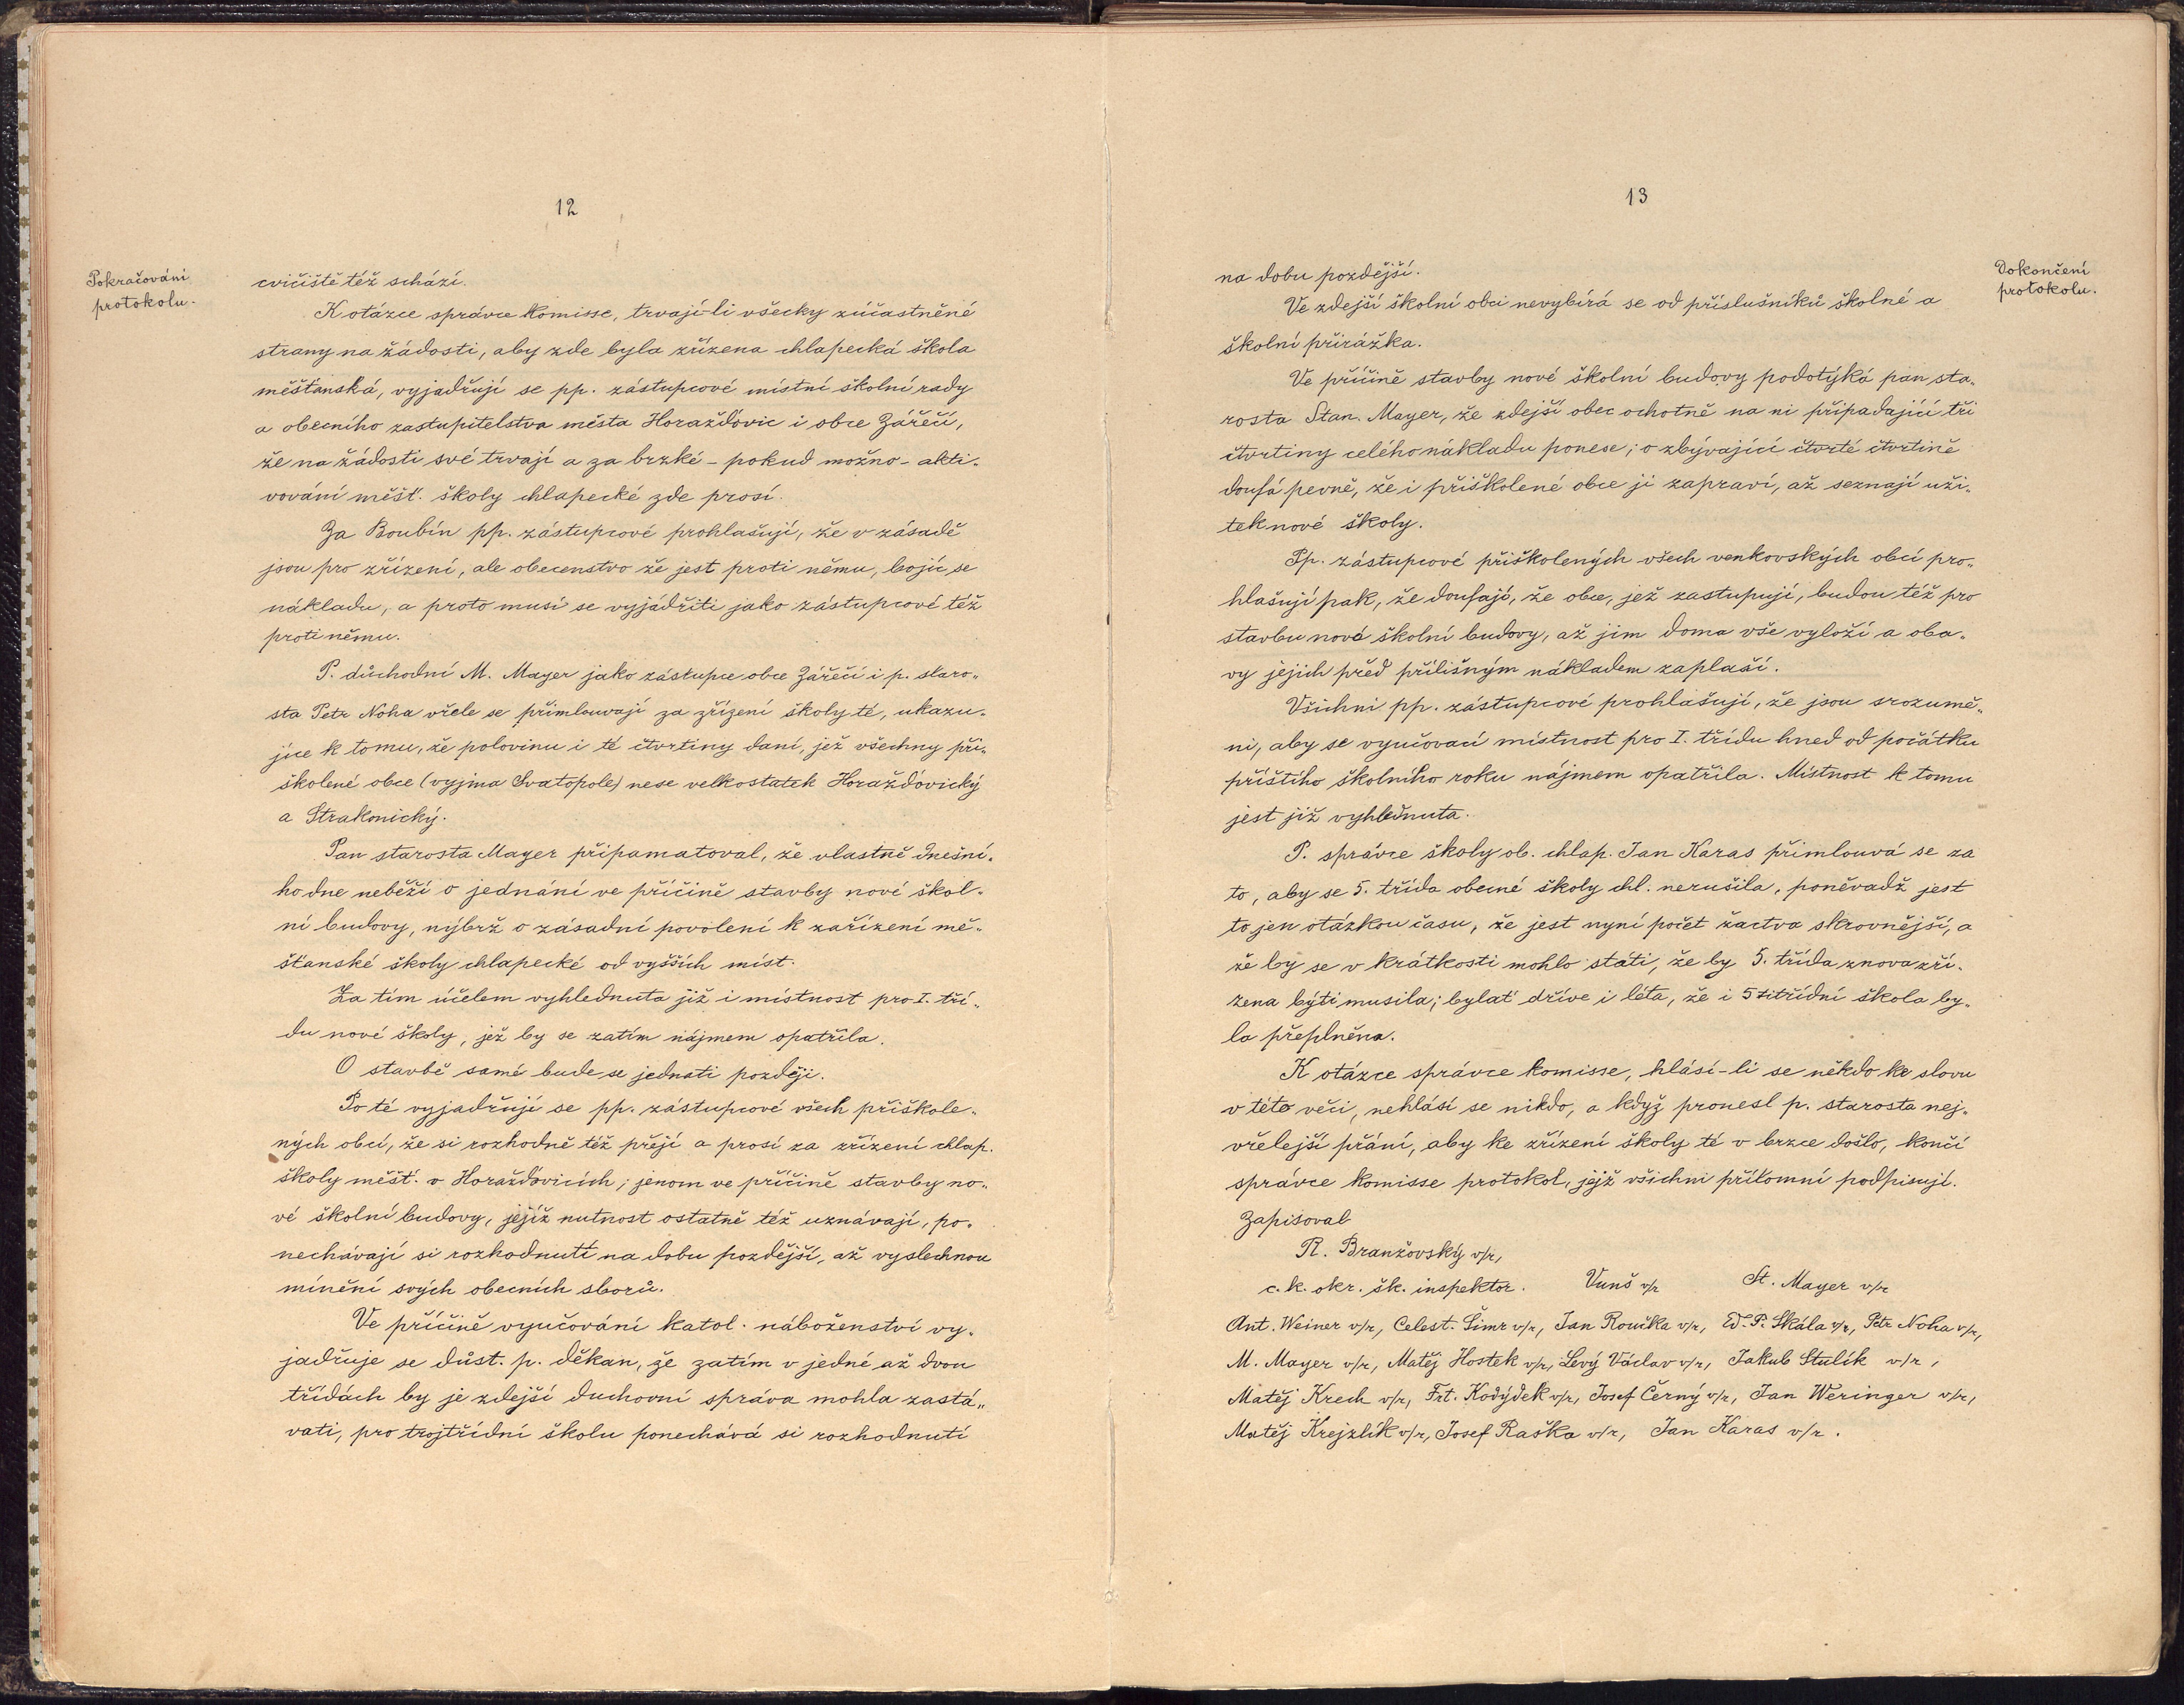 12
Pokračování
protokolu.
cvičiště též schází.
K otázce správce komisse, trvají-li všecky zúčastněné
strany na žádosti, aby zde byla zřízena chlapecká škola
měšťanská, vyjadřují se pp. zástupcové místní školní rady
a obecního zastupitelstva města Horažďovic i obce Zářečí,
že na žádosti své trvají a za brzké - pokud možno - akti„
vování měšť. školy chlapecké zde prosí.
Za Boubín pp. zástupcové prohlašují, že v zásadě
jsou pro zřízení, ale obecenstvo že jest proti němu, bojíc se
nákladu, a proto musí se vyjádřiti jako zástupcové též
proti němu.
P. důchodní M. Mayer jako zástupce obce Zářečí i p. staro„
sta Petr Noha vřele se přimlouvají za zřízení školy té, ukazu„
jíce k tomu, že polovinu i té čtvrtiny daní, jež všechny při„
školené obce (vyjma Svatopole) nese velkostatek Horažďovický
a Strakonický.
Pan starosta Mayer připamatoval, že vlastně dnešní„
ho dne neběží o jednání ve příčině stavby nové škol„
ní budovy, nýbrž o zásadní povolení k zařízení mě„
šťanské školy chlapecké od vyšších míst.
Za tím účelem vyhlednuta již i místnost pro I. tří„
du nové školy, jež by se zatím nájmem opatřila.
O stavbě samé bude se jednati později.
Po té vyjadřují se pp. zástupcové všech přiškole„
ných obcí, že si rozhodně též přejí a prosí za zřízení chlap.
školy měšť. v Horažďovicích; jenom ve příčině stavby no„
vé školní budovy, jejíž nutnost ostatně též uznávají, po„
nechávají si rozhodnutí na dobu pozdější, až vyslechnou
mínění svých obecních sborů.
Ve příčině vyučování katol. náboženství vy„
jadřuje se důst. p. děkan, že zatím v jedné až dvou
třídách by je zdejší duchovní správa mohla zastá„
vati, pro trojtřídní školu ponechává si rozhodnutí
13
Dokončení
protokolu.
na dobu pozdější.
Ve zdejší školní obci nevybírá se od příslušníků školné a
školní přirážka.
Ve příčině stavby nové školní budovy podotýká pan sta„
rosta Stan. Mayer, že zdejší obec ochotně na ni připadající tři
čtvrtiny celého nákladu ponese; o zbývající čtvrté čtvrtině
doufá pevně, že i přiškolené obce ji zapraví, až seznají uži„
tek nové školy.
Pp. zástupcové přiškolených všech venkovských obcí pro„
hlašují pak, že doufají, že obce, jež zastupují, budou též pro
stavbu nové školní budovy, až jim doma vše vyloží a oba„
vy jejich před přílišným nákladem zaplaší.
Všichni pp. zástupcové prohlašují, že jsou srozumě„
ni, aby se vyučovací místnost pro I. třídu hned od počátku
příštího školního roku nájmem opatřila. Místnost k tomu
jest již vyhlednuta.
P. správce školy ob. chlap. Jan Karas přimlouvá se za
to, aby se 5. třída obecné školy chl. nerušila, poněvadž jest
to jen otázkou času, že jest nyní počet žactva skrovnější, a
že by se v krátkosti mohlo stati, že by 5. třída znova zří„
zena býti musila; bylať dříve i léta, že i 5titřídní škola by„
la přeplněna.
K otázce správce komisse, hlásí-li se někdo ke slovu
v této věci, nehlásí se nikdo, a když pronesl p. starosta nej„
vřelejší přání, aby ke zřízení školy té v brzce došlo, končí
správce komisse protokol, jejž všichni přítomní podpisují.
Zapisoval
R. Branžovský v/r,
c. k. okr. šk. inspektor. Vunš v/r St. Mayer v/r
Ant. Weiner v/r, Celest. Šimr v/r, Jan Roučka v/r, Ed. P. Skála v/r, Petr Noha v/r,
M. Mayer v/r, Matěj Hostek v/r, Levý Václav v/r, Jakub Stulík v/r,
Matěj Krech v/r, Frt. Kodýdek v/r, Josef Černý v/r, Jan Weringer v/r,
Matěj Krejzlík v/r, Josef Raška v/r, Jan Karas v/r.